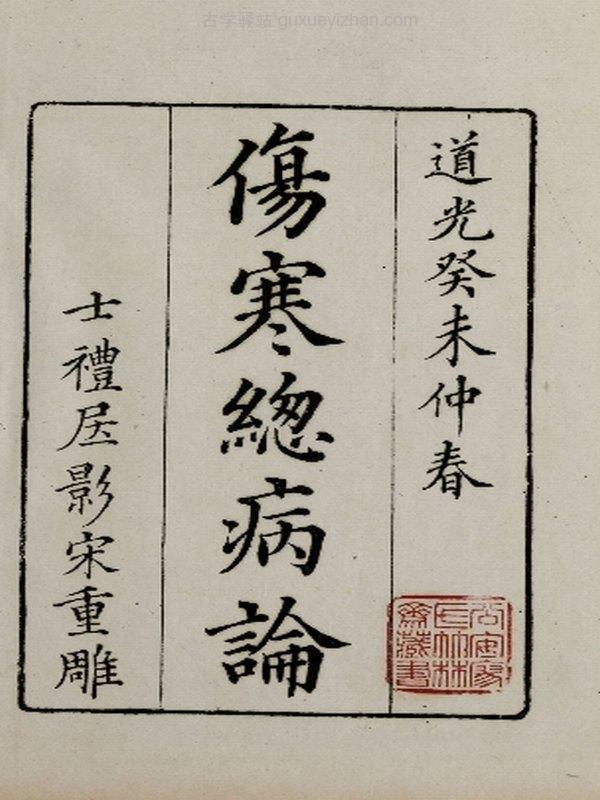 古学驿站 guxueyizhan.com
道光癸未仲春
傷寒緫病論
士禮居影宋重雕